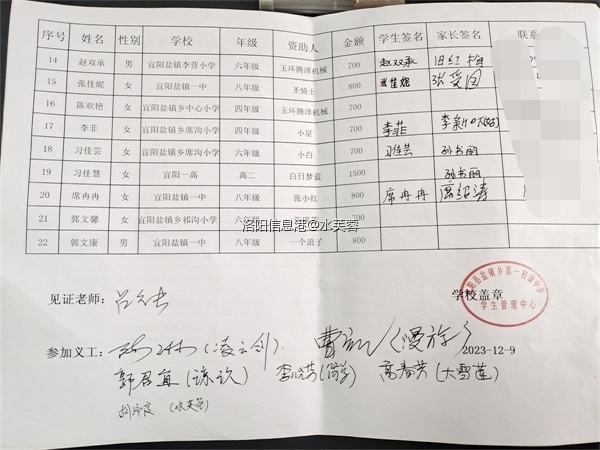 序号 姓名 性别 学校 年级 资助人 金额 学生签名 家长签名 联系
14 赵双承 男 宜阳盐镇李营小学 六年级 玉环腾泽机械 700 赵双承
15 张佳妮 女 宜阳盐镇一中 八年级 圣骑士 800 张佳妮
16 陈欢艳 女 宜阳盐镇乡中心小学 四年级 玉环腾泽机械 700
17 李菲 女 宜阳盐镇乡席沟小学 四年级 小星 700 李菲
18 习佳芸 女 宜阳盐镇乡席沟小学 六年级 小白 700 习佳芸 孙书丽
19 习佳慧 女 宜阳一高 高二 白日梦蓝 1500 孙书丽
20 席冉冉 女 宜阳盐镇一中 八年级 张小红 800 席冉冉 席绍涛
21 郭文馨 女 宜阳盐镇乡祁沟小学 六年级 700
22 郭文康 男 宜阳盐镇一中 八年级 一个浪子 800
洛阳信息港@水芙蓉
见证老师:
学校盖章
宜阳县盐镇乡第一初级中学
学生管理中心
参加义工: (凌云剑) (漫游)
2023-12-9
郭君宜 高春芳 (大雪莲)
(水芙蓉)